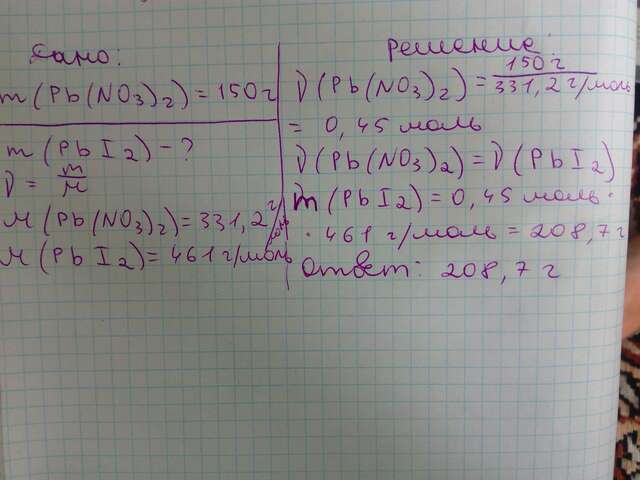 Дано:
m (Pb(NO3)2) = 150г
m (PbI2) - ?
ν = m/M
M (Pb(NO3)2) = 331,2 г/моль
M (PbI2) = 461 г/моль
Решение:
ν (Pb(NO3)2) = 150г / 331,2 г/моль
= 0,45 моль
ν (Pb(NO3)2) = ν (PbI2)
m (PbI2) = 0,45 моль ·
· 461 г/моль = 208,7 г
Ответ: 208,7 г